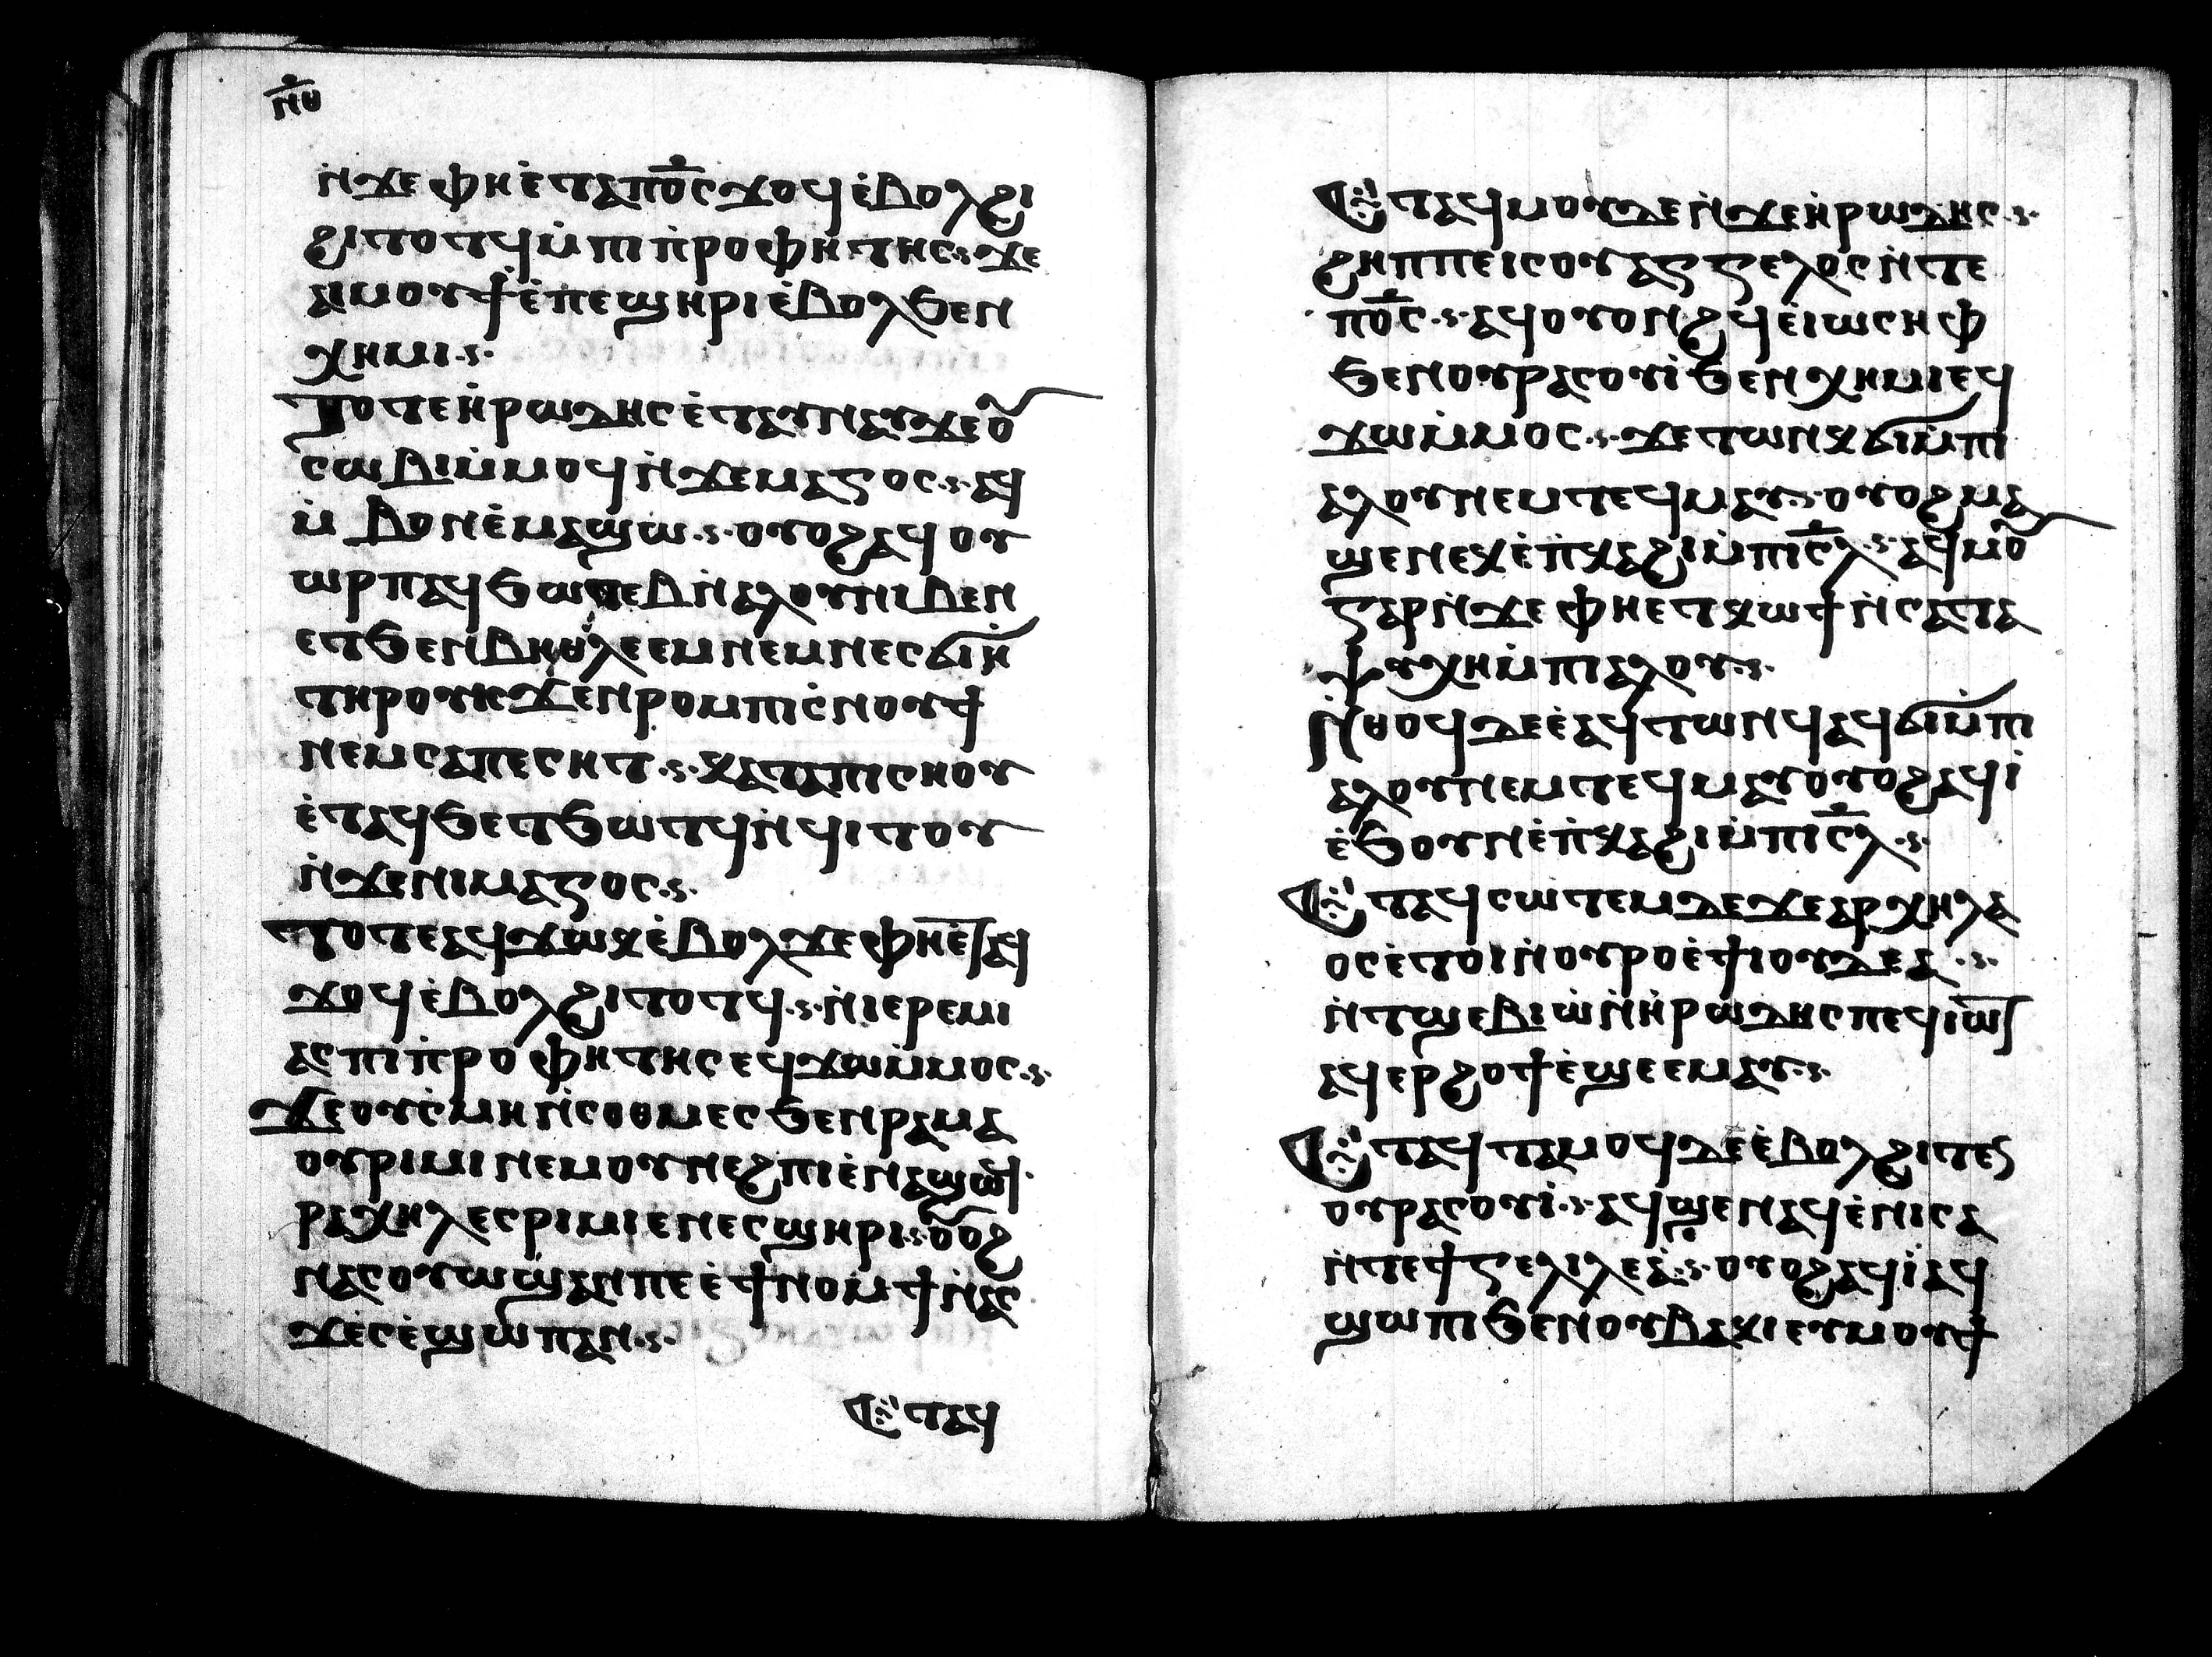 ⲛ̅ⲑ
ⲛ̇ϫⲉ ⲫⲏⲉ̇ⲧⲁⲡⲟ̅ⲥ ϫⲟϥ ⲉ̇ⲃⲟⲗϩⲓ
ϩⲓⲧⲟⲧϥ ⲙ̇ⲡⲓⲡ̇ⲣⲟⲫⲏⲧⲏⲥ ϫⲉ
ⲁⲓⲙⲟⲩϯ ⲉ̇ⲡⲉϣⲏⲣⲓ ⲉ̇ⲃⲟⲗϧⲉⲛ
ⲭⲏⲙⲓ
ⲧⲟⲧⲉ ⲏ̇ⲣⲱⲇⲏⲥ ⲉ̇ⲧⲁⲩⲛⲁⲩ ϫⲉⲟ̅
ⲥⲱⲃⲓ ⲙ̇ⲙⲟϥ ⲛ̇ϫⲉ ⲙⲁⲅⲟⲥ ⲁϥ
ⲙ̇ⲃⲟⲛ ⲉ̇ⲙⲁϣⲱ ⲟⲩⲟϩ ⲁϥⲟⲩ
ⲱⲣⲡ ⲁϥϧⲱⲧⲉⲃ ⲛ̇ⲁⲗⲟⲩ ⲛⲓⲃⲉⲛ
ⲉⲧϧⲉⲛ ⲃⲏⲑⲗⲉⲉⲙ ⲛⲉⲙ ⲛⲉⲥϭⲓⲏ̇
ⲧⲏⲣⲟⲩ ⲓⲥϫⲉⲛ ⲣⲟⲙⲡⲓ ⲥ̇ⲛⲟⲩϯ
ⲛⲉⲙ ⲥⲁⲡⲉⲥⲏⲧ ⲕⲁⲧⲁ ⲡⲓⲥⲏⲟⲩ
ⲉ̇ⲧⲁϥϧⲉⲧϧⲱⲧϥ ⲛ̇ϥⲓⲧⲟⲩ
ⲛ̇ϫⲉ ⲛⲓⲙⲁⲅⲟⲥ
ⲧⲟⲧⲉ ⲁϥϫⲱⲕ ⲉ̇ⲃⲟⲗ ϫⲉ ⲫⲏⲉ̇ⲧⲁϥ
ϫⲟϥ ⲉ̇ⲃⲟⲗϩⲓⲧⲟⲧϥ ⲛ̇ⲓⲉⲣⲉⲙⲓ
ⲁⲥ ⲡⲓⲡ̇ⲣⲟⲫⲏⲧⲏⲥ ⲉϥϫⲱⲙ̇ⲙⲟⲥ
ϫⲉ ⲟⲩⲥ̇ⲙⲏ ⲛ̇ⲥⲟⲑⲙⲉⲥ ϧⲉⲛ ⲣⲁⲙⲁ
ⲟⲩⲣⲓⲙⲓ ⲛⲉⲙ ⲟⲩⲛⲉϩⲡⲓ ⲉ̇ⲛⲁϣⲱϥ
ⲣⲁⲭⲏⲗ ⲉⲥⲣⲓⲙⲓ ⲉⲛⲉⲥϣⲏⲣⲓ ⲟ̅ⲟϩ
ⲛⲁⲥⲟⲩⲱϣ ⲁⲛⲡⲉ ⲉ̇ϯⲛⲟⲙϯ ⲛⲁⲥ
ϫⲉ ⲥⲉ̇ϣⲱⲡ ⲁⲛ
Ⲉⲧⲁϥ
Ⲉⲧⲁϥⲙⲟⲩ ⲇⲉ ⲛ̇ϫⲉ ⲏ̇ⲣⲱⲇⲏⲥ
ϩⲏⲡⲡⲉ ⲓⲥ ⲟⲩⲁⲅⲅⲉⲗⲟⲥ ⲛ̇ⲧⲉ
ⲡⲟ̅ⲥ ⲁϥⲟⲩⲟⲛϩϥ ⲉ̇ⲓⲱⲥⲏⲫ
ϧⲉⲛ ⲟⲩⲣⲁⲥⲟⲩⲓ̇ ϧⲉⲛ ⲭⲏⲙⲓ ⲉϥ
ϫⲱⲙ̇ⲙⲟⲥ ϫⲉ ⲧⲱⲛⲕ ϭⲓ ⲙ̇ⲡⲓ
ⲁⲗⲟⲩ ⲛⲉⲙ ⲧⲉϥⲙⲁⲩ ⲟⲩⲟϩ ⲙⲁ
ϣⲉⲛⲉⲕ ⲉ̇ⲡ̇ⲕⲁϩⲓ ⲙ̇ⲡⲓⲥ̅ⲗ ⲁϥⲙⲟ̅
ⲅⲁⲣ ⲛ̇ϫⲉ ⲫⲏⲉⲧⲕⲱϯ ⲛ̇ⲥⲁⲧⲁ
ⲯⲩⲭⲏ ⲙ̇ⲡⲓⲁⲗⲟⲩ
ⲛ̇ⲑⲟϥ ⲇⲉ ⲉ̇ⲁϥⲧⲱⲛϥ ⲁϥϭⲓ ⲙ̇ⲡⲓ
ⲁⲗⲟⲩ ⲛⲉⲙ ⲧⲉϥⲙⲁⲩ ⲟⲩⲟϩ ⲁϥⲓ̇
ⲉ̇ϧⲟⲩⲛ ⲉ̇ⲡ̇ⲕⲁϩⲓ ⲙ̇ⲡⲓⲥ̅ⲗ
Ⲉⲧⲁϥⲥⲱⲧⲉⲙ ⲇⲉ ϫⲉ ⲁⲣⲭⲏⲗⲁ
ⲟⲥ ⲉ̇ⲧⲟⲓ ⲛ̇ⲟⲩⲣⲟ ⲉ̇ϯⲓⲟⲩⲇⲉⲁ
ⲛ̇ⲧϣⲉⲃⲓⲱ̇ ⲛ̇ⲏ̇ⲣⲱⲇⲏⲥ ⲡⲉϥⲓⲱⲧ
ⲁϥⲉⲣϩⲟϯ ⲉ̇ϣⲉ ⲉⲙⲁⲩ
Ⲉⲧⲁϥⲧⲁⲙⲟϥ ⲇⲉ ⲉ̇ⲃⲟⲗϩⲓⲧⲉⲛ
ⲟⲩⲣⲁⲥⲟⲩⲓ̇ ⲁϥϣⲉⲛⲁϥ ⲉ̇ⲛⲓⲥⲁ
ⲛ̇ⲧⲉ ϯⲅⲉⲗⲓⲗⲉⲁ̇ ⲟⲩⲟϩ ⲁϥⲓ̇ ⲁϥ
ϣⲱⲡⲓ ϧⲉⲛ ⲟⲩⲃⲁⲕⲓ ⲉⲩⲙⲟⲩϯ